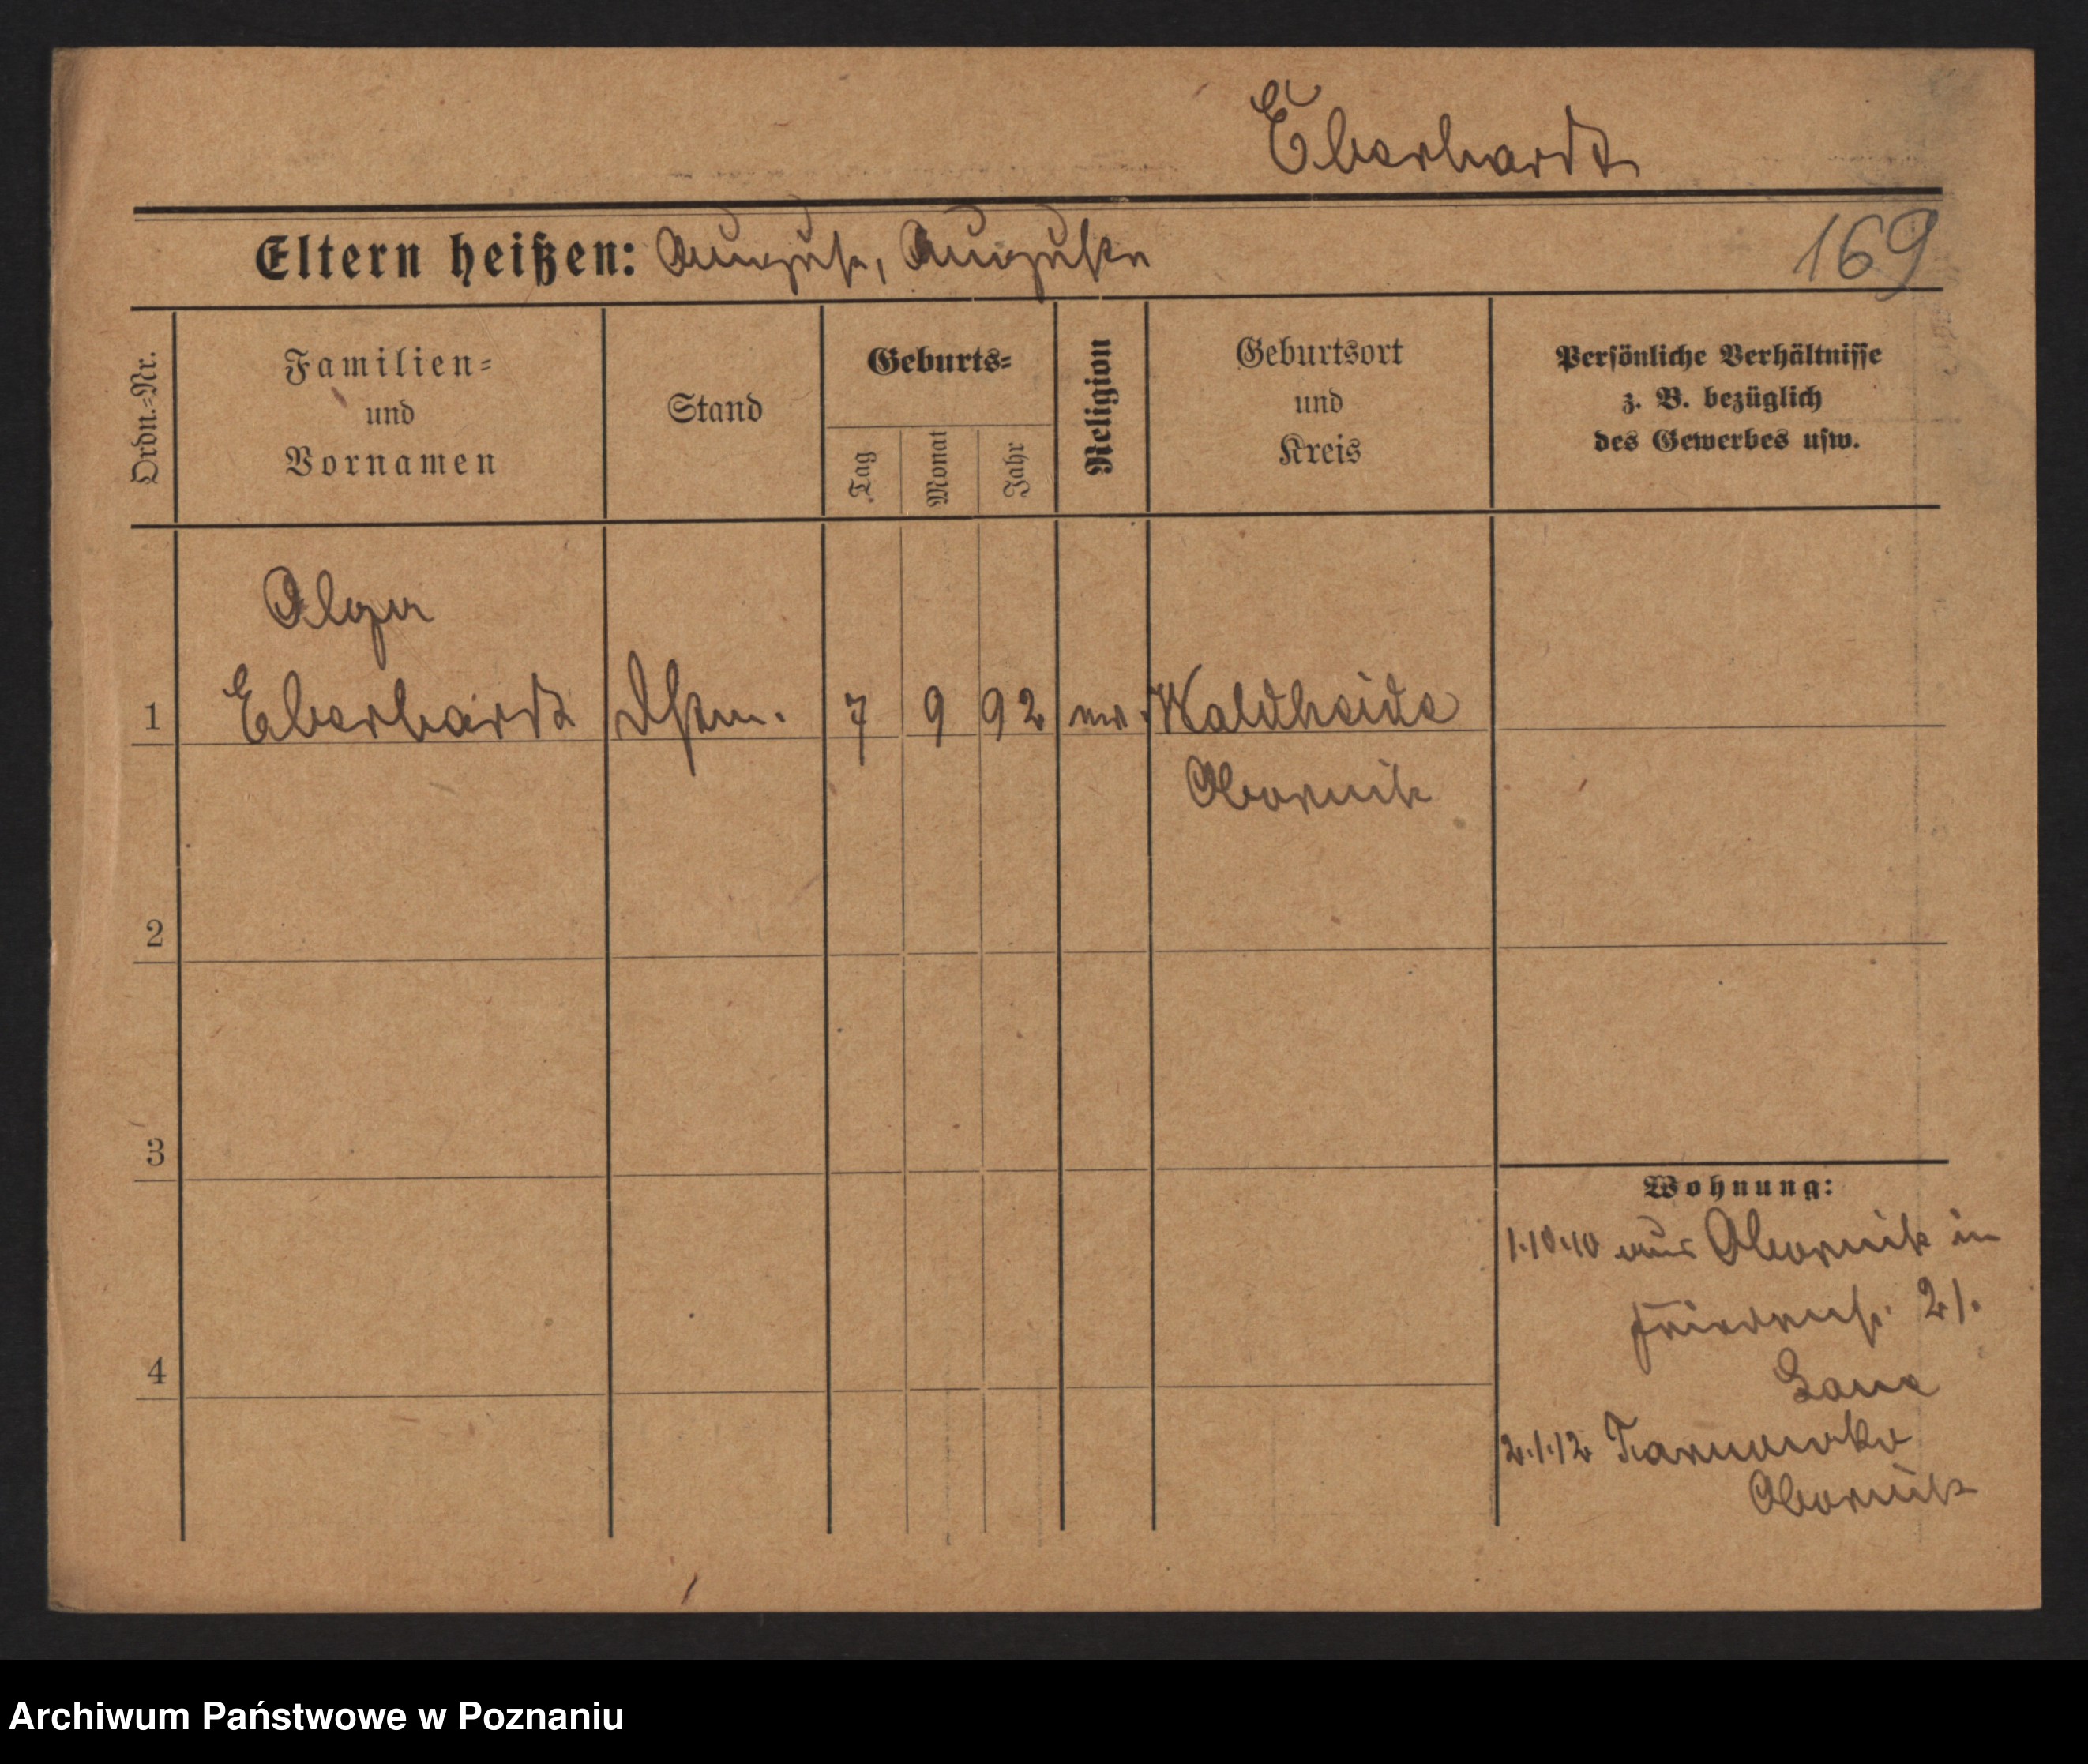 Eberhardt
Eltern heißen: August, Auguste
169
Ordn.-Nr.
Familien-
und
Vornamen
Stand
Geburts-
Tag
Monat
Jahr
Religion
Geburtsort
und
Kreis
Persönliche Verhältnisse
z. B. bezüglich
des Gewerbes usw.
Olga
1 Eberhardt Dstm. 7 9 92 ev. Waldheide
Obornik
2
3
4
Wohnung:
1.10.10 aus Obornik in
21.
2.1.12
Obornik
Archiwum Państwowe w Poznaniu